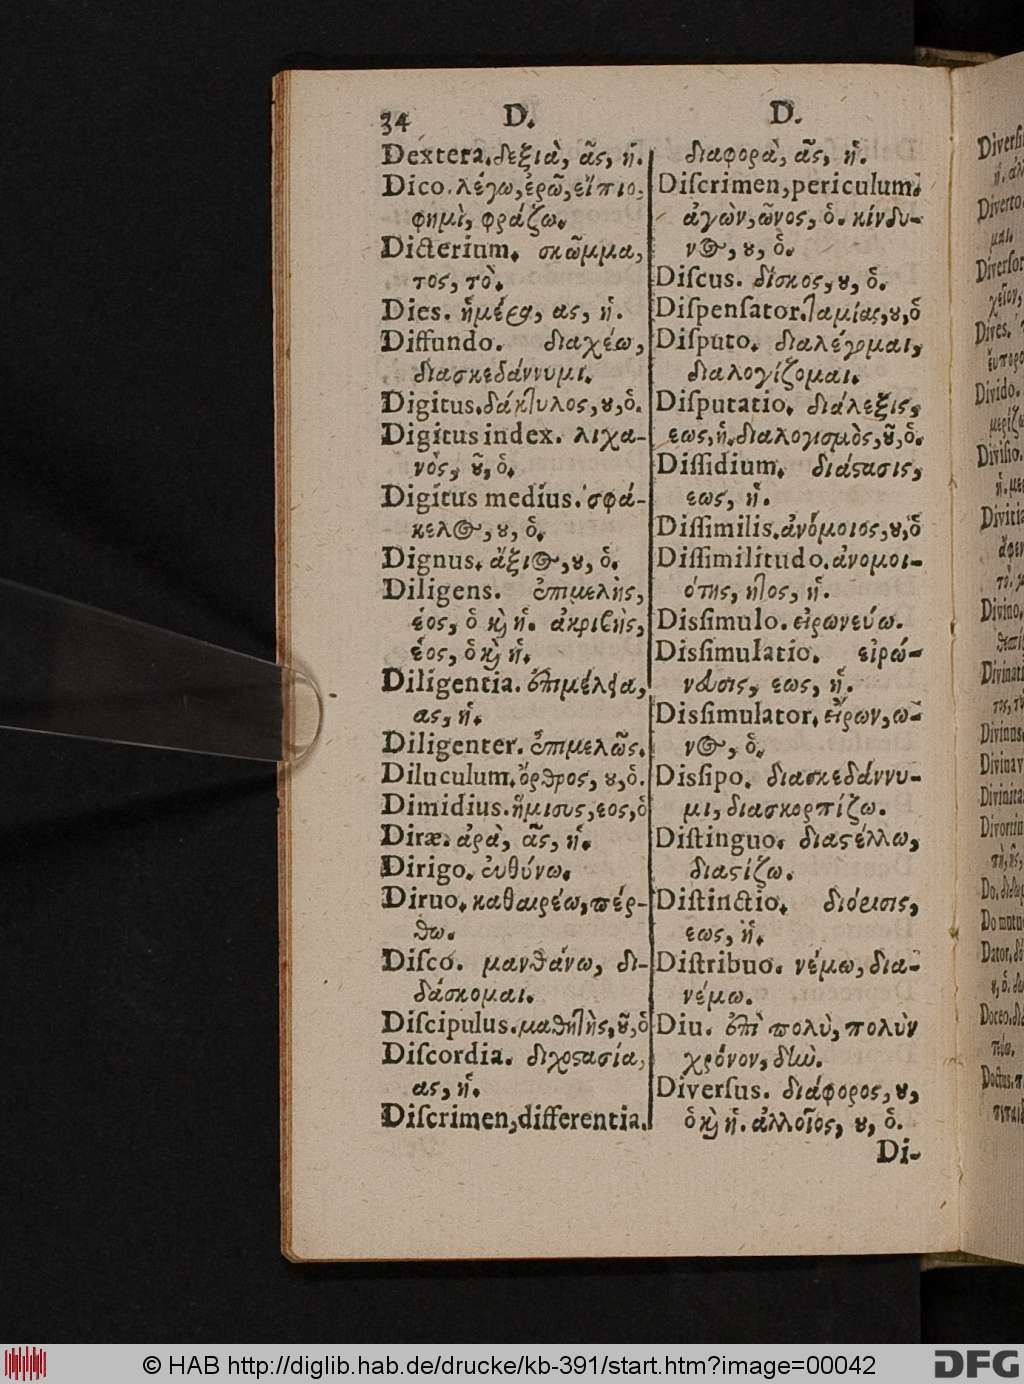 34 D. D.
Dextera. δεξιὰ, ᾶς, ἡ.
Dico. λέγω, ἐρῶ, εἴπιο,
φημὶ, φράζω.
Dicterium. σκῶμμα,
τος, τὸ.
Dies. ἡμέρα, ας, ἡ.
Diffundo. διαχέω,
διασκεδάννυμι.
Digitus. δάκτυλος, ȣ, ὁ.
Digitus index. λιχα-
νὸς, ȣ͂, ὁ.
Digitus medius. σφά-
κελος, ȣ, ὁ.
Dignus. ἄξιος, ȣ, ὁ.
Diligens. ἐπιμελὴς,
έος, ὁ κὶ ἡ. ἀκριβὴς,
έος, ὁ κὶ ἡ.
Diligentia. ἐπιμέλεια,
ας, ἡ.
Diligenter. ἐπιμελῶς.
Diluculum. ὄρθρος, ȣ, ὁ.
Dimidius. ἥμισυς, εος, ὁ
Diræ. ἀρὰ, ᾶς, ἡ.
Dirigo. εὐθύνω.
Diruo. καθαιρέω, πέρ-
θω.
Diſco. μανθάνω, δι-
δάσκομαι.
Diſcipulus. μαθητὴς, ȣ͂, ὁ
Diſcordia. διχοστασία,
ας, ἡ.
Diſcrimen, differentia.
διαφορὰ, ᾶς, ἡ.
Diſcrimen, periculum.
ἀγὼν, ῶνος, ὁ. κίνδυ-
νος, ȣ, ὁ.
Diſcus. δίσκος, ȣ, ὁ.
Diſpenſator. ταμίας, ȣ, ὁ
Diſputo. διαλέγομαι,
διαλογίζομαι.
Diſputatio. διάλεξις,
εως, ἡ. διαλογισμὸς, ȣ͂, ὁ.
Diſſidium. διάστασις,
εως, ἡ.
Diſſimilis. ἀνόμοιος, ȣ, ὁ
Diſſimilitudo. ἀνομοι-
ότης, ητος, ἡ.
Dissimulo. εἰρωνεύω.
Dissimulatio. εἰρώ-
νευσις, εως, ἡ.
Dissimulator. εἴρων, ω-
νος, ὁ.
Dissipo. διασκεδάννυ-
μι, διασκορπίζω.
Diſtinguo. διαστέλλω,
διαστίζω.
Diſtinctio. διόρισις,
εως, ἡ.
Diſtribuo. νέμω, δια-
νέμω.
Diu. ἐπὶ πολὺ, πολὺν
χρόνον, δὴν.
Diverſus. διάφορος, ȣ,
ὁ κὶ ἡ. ἀλλοῖος, ȣ, ὁ.
Di-
Diverto.
μαι.
Dives.
Divido.
Diviſio.
Divino.
Divinus.
© HAB http://diglib.hab.de/drucke/kb-391/start.htm?image=00042
DFG